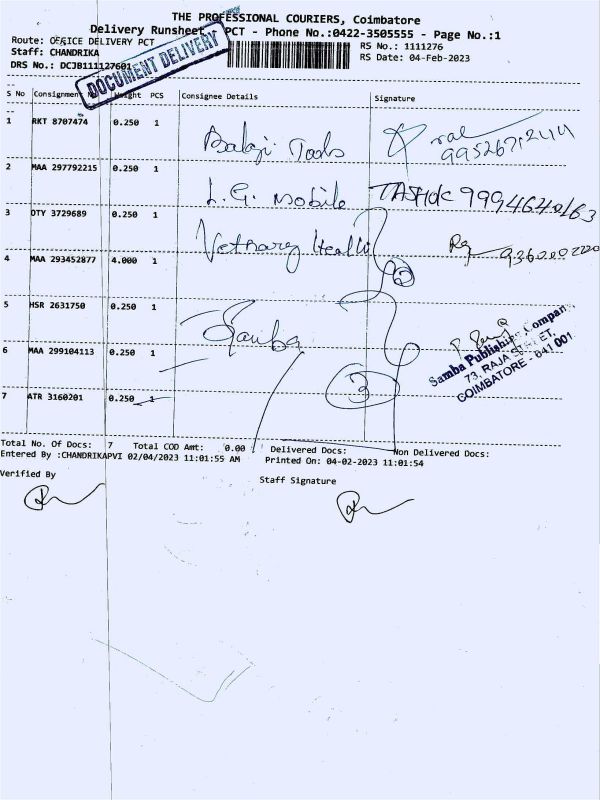 THE PROFESSIONAL COURIERS, Coimbatore
Delivery Runsheet PCT - Phone No.:0422-3505555 - Page No.:1
Route: OFFICE DELIVERY PCT
RS No.: 1111276
Staff: CHANDRIKA
RS Date: 04-Feb-2023
DRS No.: DCJB111127601
DOCUMENT DELIVERY
S No Consignment Weight PCS Consignee Details Signature
1 RKT 8707474 0.250 1
Balaji Tools
2 MAA 297792215 0.250 1
L.G. mobile
3 DTY 3729689 0.250 1
4 MAA 293452877 4.000 1
5 HSR 2631750 0.250 1
Samba
Samba Publishing Company
73, RAJA STREET,
COIMBATORE - 641 001
6 MAA 299104113 0.250 1
3
7 ATR 3160201 0.250 1
Total No. Of Docs: 7 Total COD Amt: 0.00 Delivered Docs: Non Delivered Docs:
Entered By :CHANDRIKAPVI 02/04/2023 11:01:55 AM Printed On: 04-02-2023 11:01:54
Verified By
Staff Signature